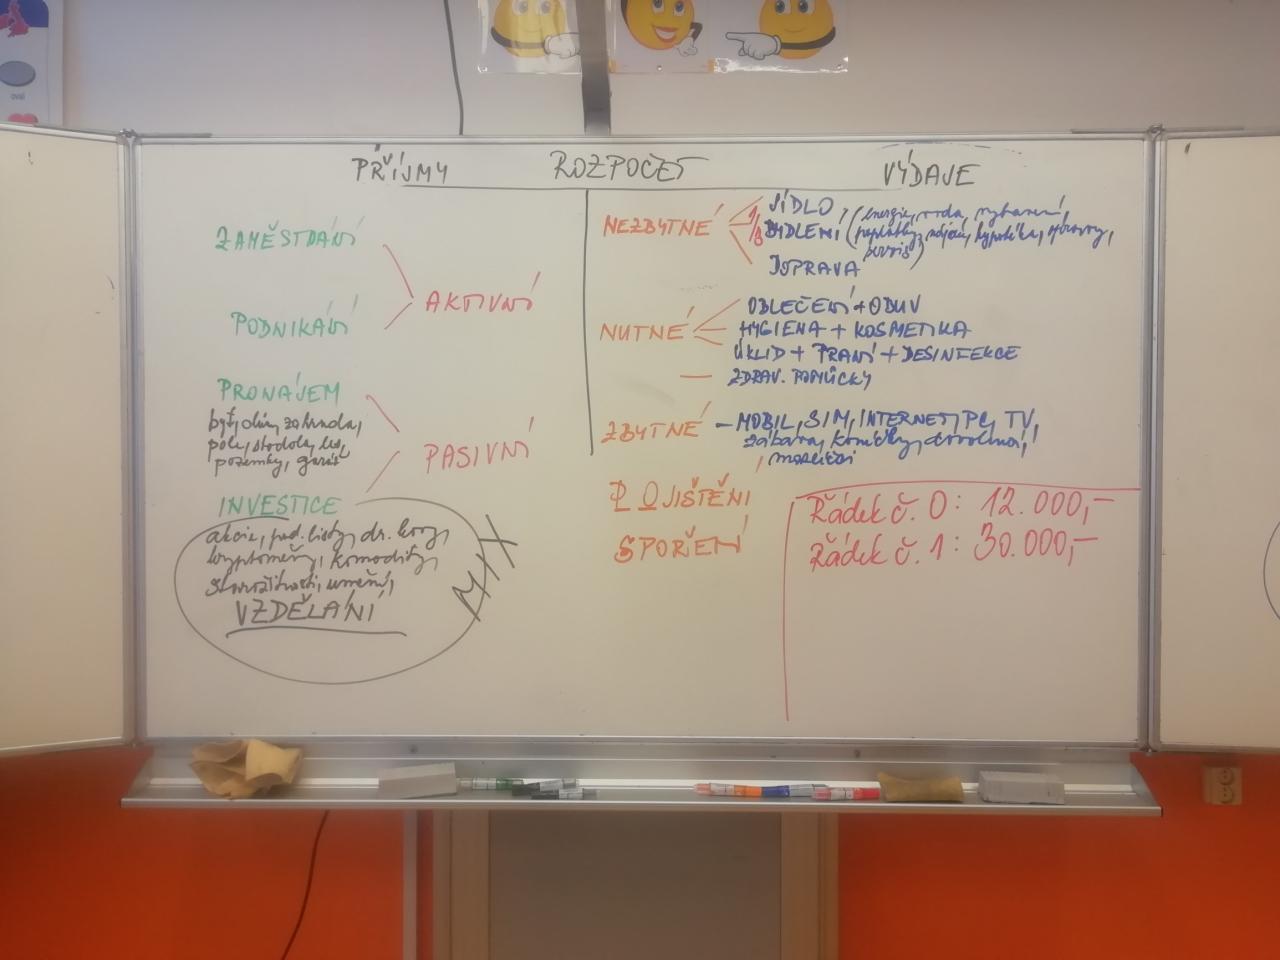 oval
PŘÍJMY ROZPOČET VÝDAJE
ZAMĚSTNÁNÍ
PODNIKÁNÍ
AKTIVNÍ
PRONÁJEM
byt, dům, zahrada,
pole, stodola, les,
pozemky, garáž
PASIVNÍ
INVESTICE
akcie, pod. listy, dr. kovy,
kryptoměny, komodity,
starožitnosti, umění,
VZDĚLÁNÍ
MIX
NEZBYTNÉ
1/3
JÍDLO,
BYDLENÍ (energie, voda, vybavení,
poplatky, nájem, hypotéka, opravy,
DOPRAVA
NUTNÉ
OBLEČENÍ + OBUV
HYGIENA + KOSMETIKA
ÚKLID + PRANÍ + DESINFEKCE
ZDRAV. POMŮCKY
ZBYTNÉ – MOBIL, SIM, INTERNET, PC, TV,
zábava, koníčky, dovolená,
mazlíčci
POJIŠTĚNÍ
SPOŘENÍ
Řádek č. 0: 12.000,–
Řádek č. 1: 30.000,–